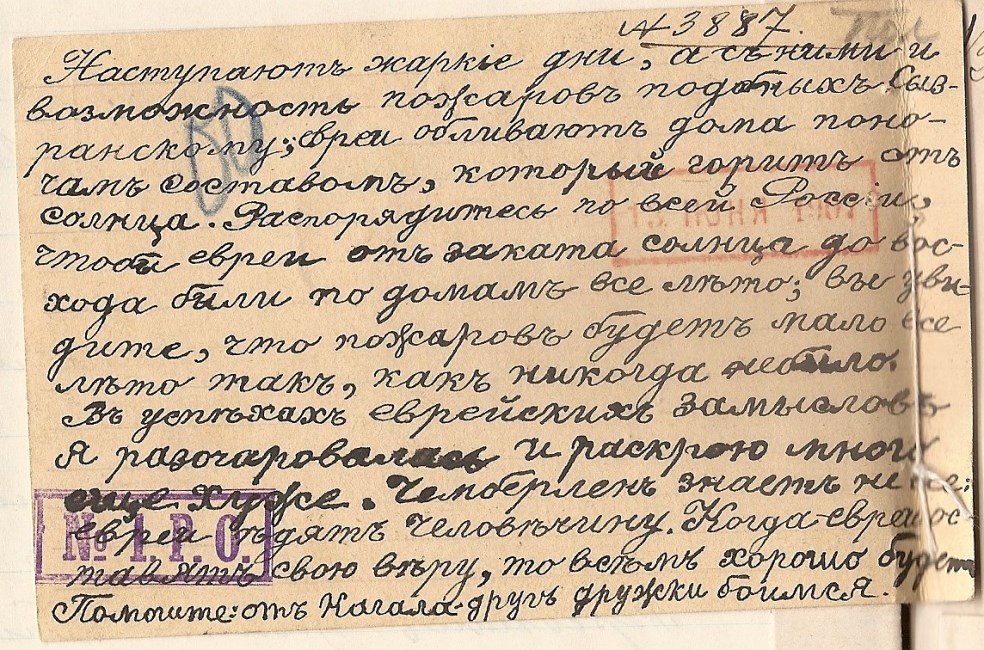 № 3887.
Наступаютъ жаркіе дни, а съ ними и
возможность пожаровъ подобныхъ Сыз-
ранскому; евреи обливаютъ дома по но-
чамъ составомъ, который горитъ отъ
солнца. Распорядитесь по всей Россіи,
чтобы евреи отъ заката солнца до вос-
хода были по домамъ все лѣто; вы уви-
дите, что пожаровъ будетъ мало все
лѣто такъ, какъ никогда не было.
Въ успѣхахъ еврейскихъ замысловъ
я разочаровалась и раскрою много
еще хуже. Чемберленъ знаетъ не все:
евреи ѣдятъ человѣчину. Когда евреи ос-
тавятъ свою вѣру, то всѣмъ хорошо будетъ
Помогите: отъ Кагала другъ дружки боимся.
№ 1. Р. О.
ІЮНЯ